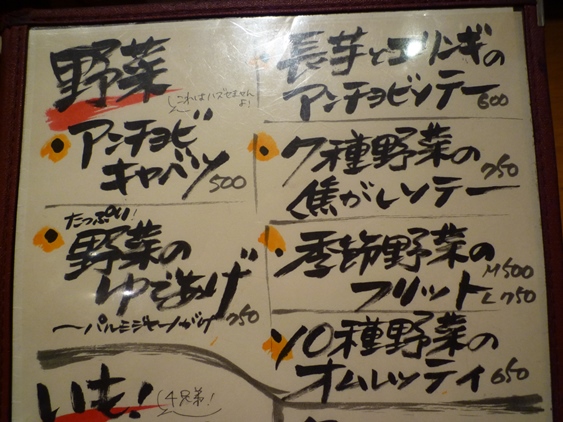 野菜
これはハズせませんよ!
アンチョビ
キャベツ
500
たっぷり!
野菜の
ゆであげ
〜パルミジャーノがけ 750
いも!
4兄弟!
長芋とエリンギの
アンチョビソテー
600
7種野菜の
焦がしソテー
750
季節野菜の
フリット
M500
L750
10種野菜の
オムレッティ 650